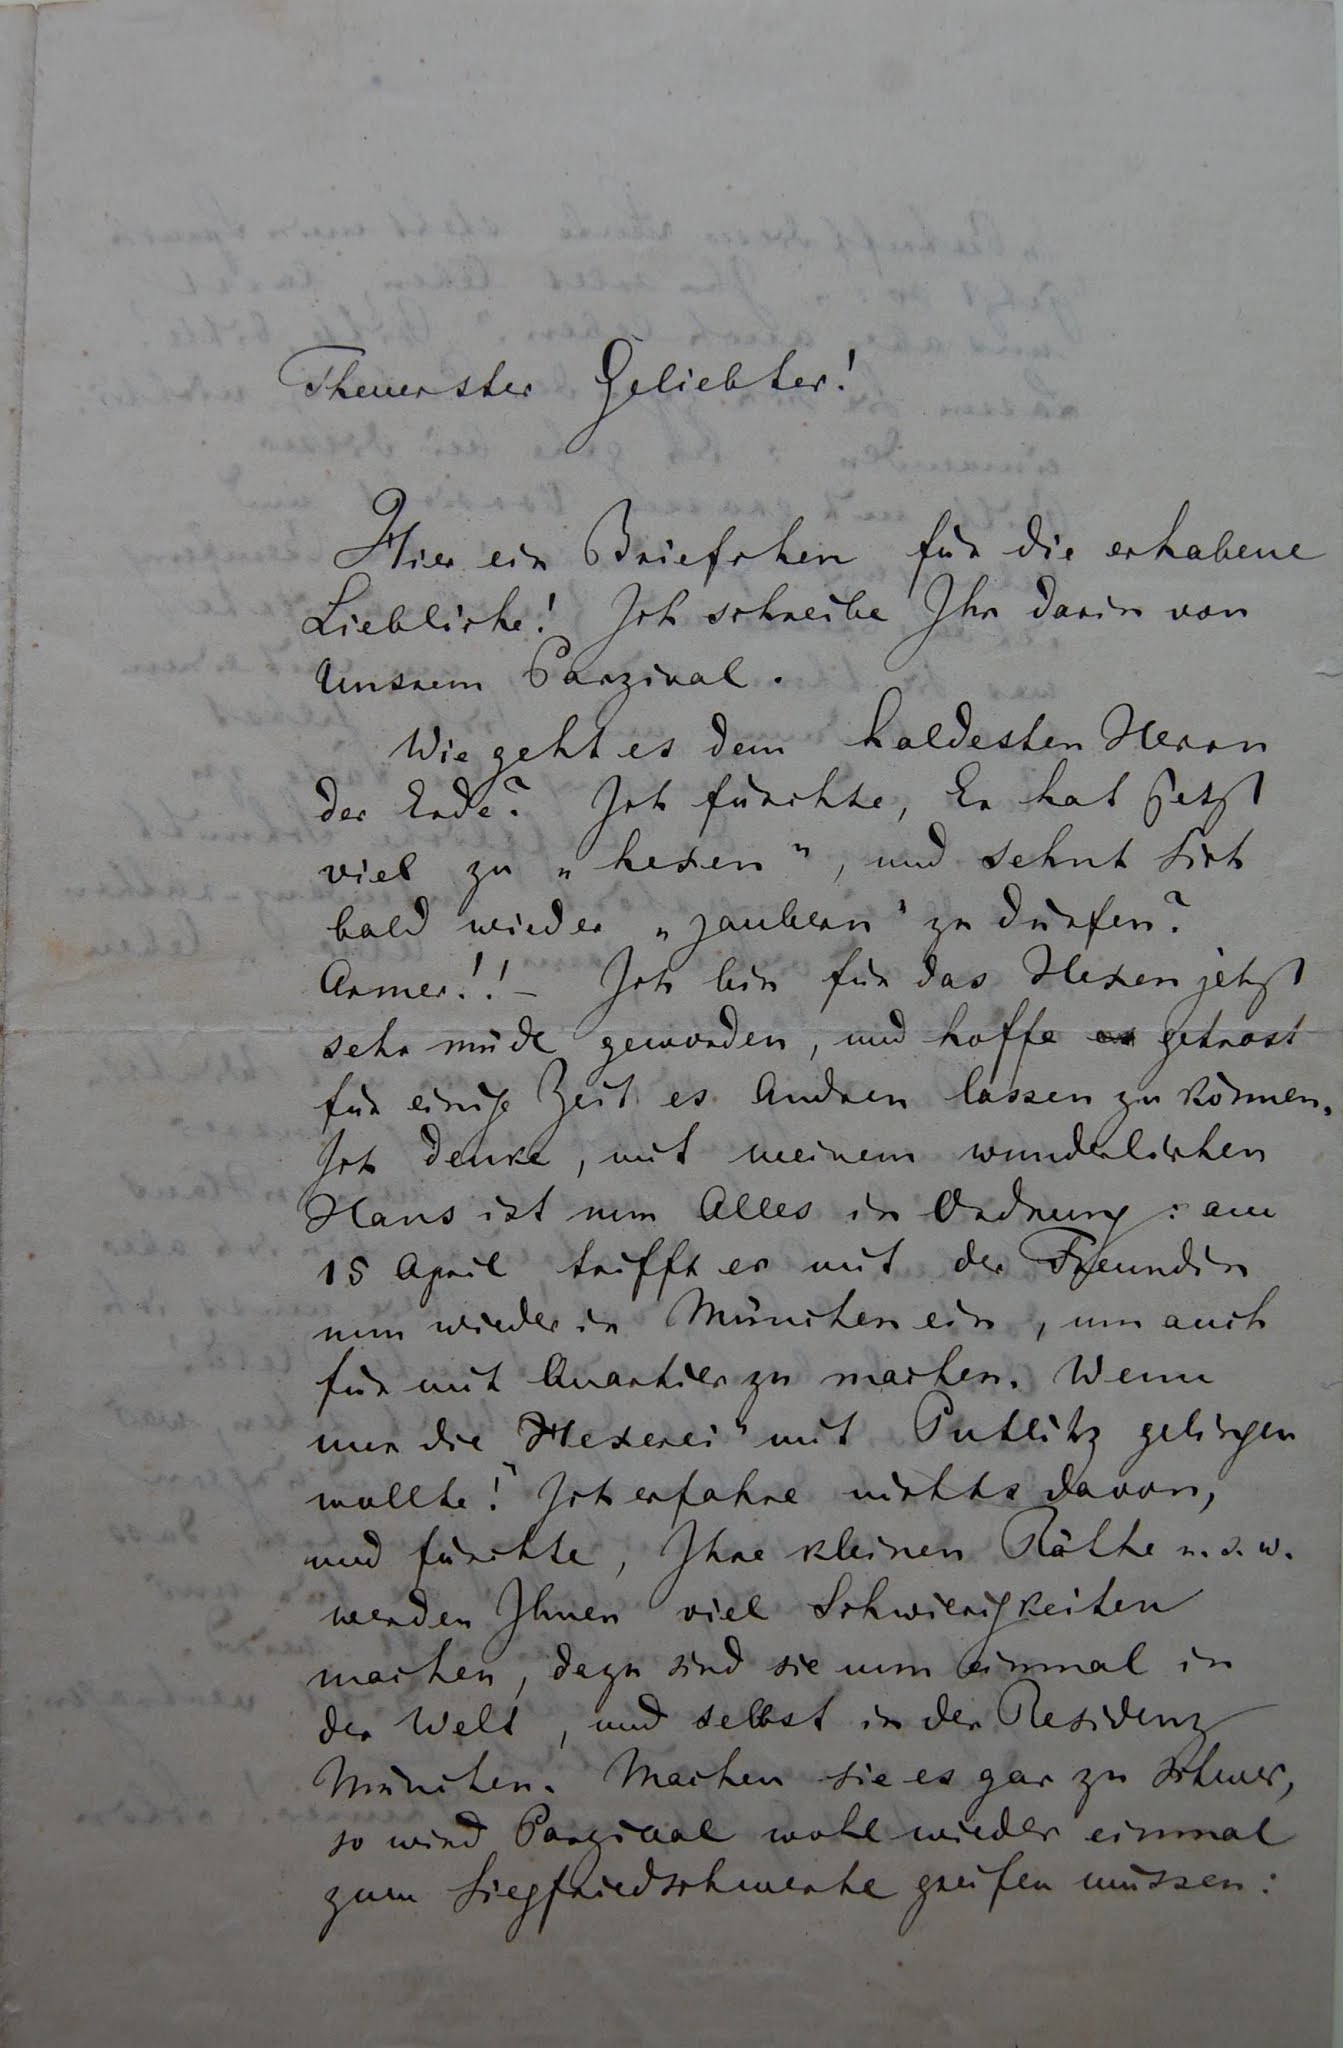 Theuerster Geliebter!
Hier ein Briefchen für die erhabene
Liebliche! Ich schreibe Ihr darin von
Unsrem Parzival.
Wie geht es dem holdesten Herrn
der Erde? Ich fürchte, Er hat jetzt
viel zu „hexen", und sehnt Sich
bald wieder „zaubern" zu dürfen?
Armer!! – Ich bin für das Hexen jetzt
sehr müde geworden, und hoffe getrost
für einige Zeit es Andren lassen zu können.
Ich denke, mit meinem wunderlichen
Hans ist nun Alles in Ordnung: am
15 April trifft er mit der Freundin
nun wieder in München ein, um auch
für mich Quartier zu machen. Wenn
nur die „Hexerei" mit Putlitz gelingen
wollte! Ich erfahre nichts davon,
und fürchte, Ihre kleinen Räthe u. s. w.
werden Ihnen viel Schwierigkeiten
machen, dazu sind sie nun einmal in
der Welt, und selbst in der Residenz
München. Machen sie es gar zu schwer,
so wird Parzival wohl wieder einmal
zum Siegfriedschwerte greifen müssen: